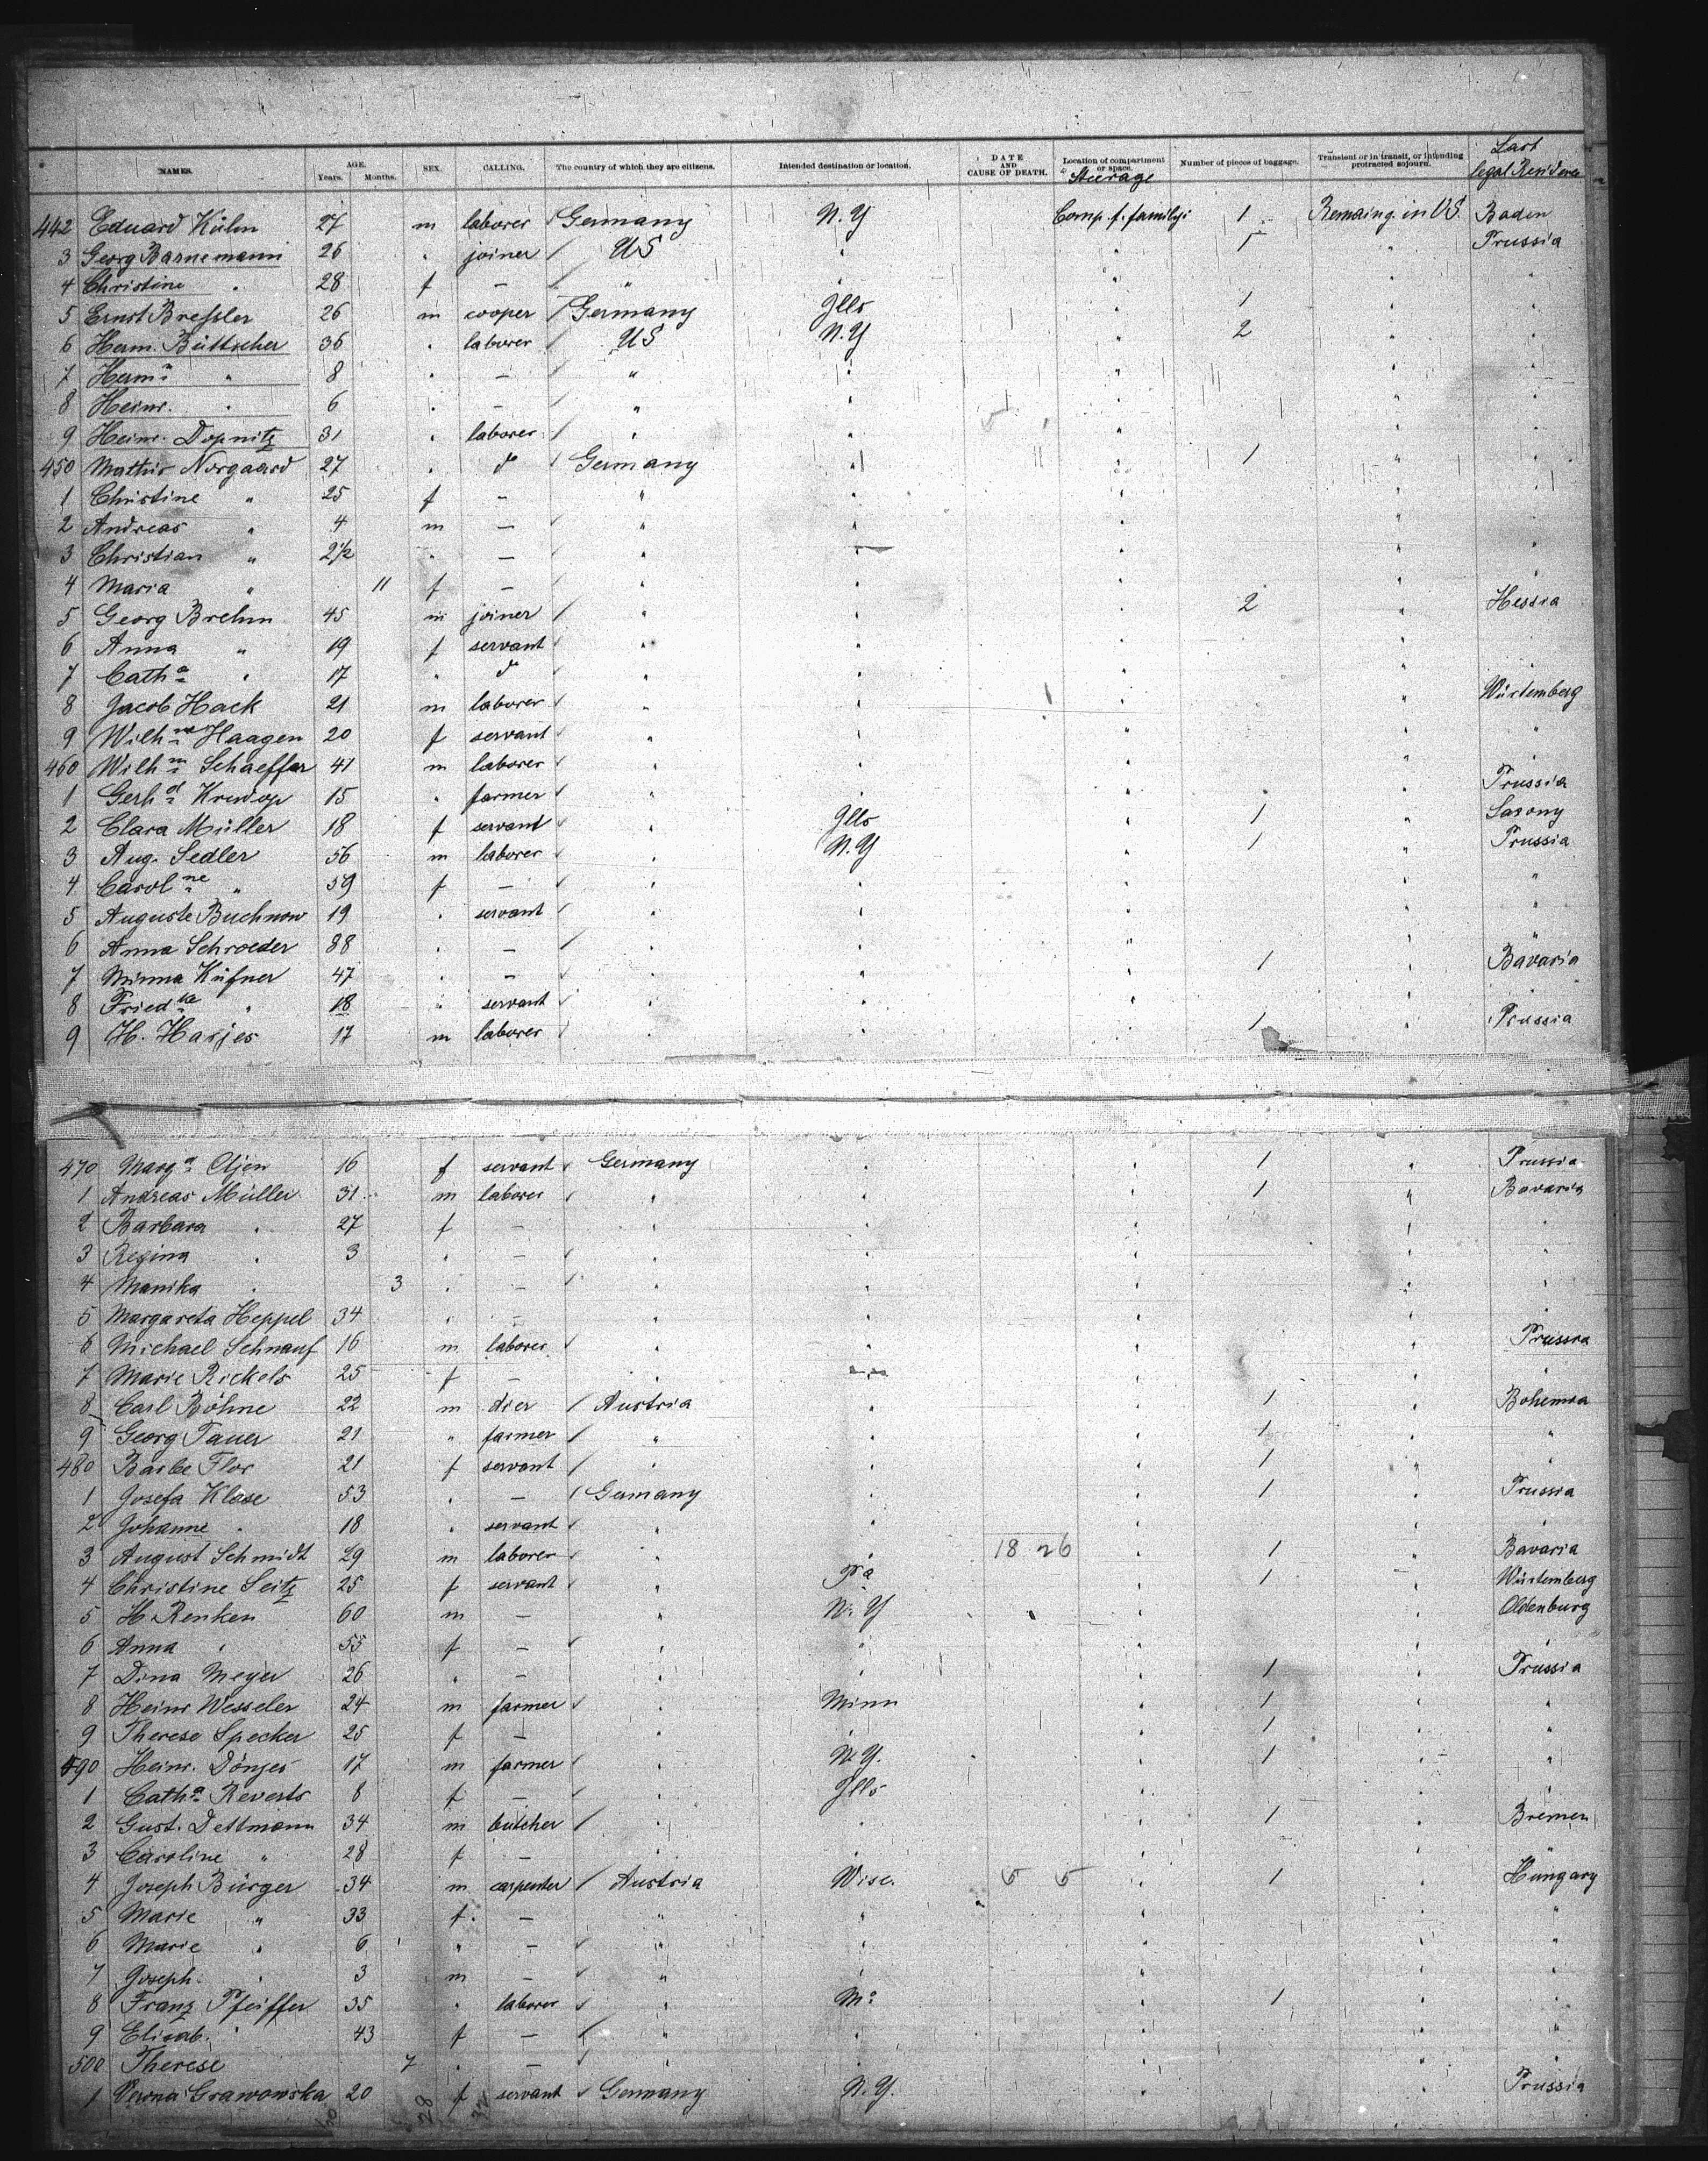 NAMES. AGE. Years. Months. SEX. CALLING. The country of which they are citizens. Intended destination or location. DATE AND CAUSE OF DEATH. Location of compartment or space. Steerage Number of pieces of baggage. Transient or in transit, or intending protracted sojourn. Last legal Residence
442 Eduard Kühn 27 m laborer / Germany N.Y Comp. f. familys 1 Remaing. in US. Baden
3 Georg Barnemann 26 " joiner / US " " 1 " Prussia
4 Christine " 28 f — / " " " " "
5 Ernst Breßler 26 m cooper / Germany Ills " 1 " "
6 Herm. Büttscher 36 " laborer / US N.Y " 2 " "
7 Herm. " 8 " — / " " " " "
8 Heinr. " 6 " — / " " " " "
9 Heinr. Dopnitz 31 " laborer / " " " " "
450 Mathis Norgaard 27 " do / Germany " " 1 " "
1 Christine " 25 f — " " " " "
2 Andreas " 4 m — / " " " " "
3 Christian " 2½ " — / " " " " "
4 Maria " 11 f — / " " " " "
5 Georg Brehm 45 m joiner / " " " 2 " Hessia
6 Anna " 19 f servant / " " " " "
7 Catha " 17 " do / " " " " "
8 Jacob Hack 21 m laborer / " " " " Würtemberg
9 Wilhne Haagen 20 f servant / " " " " "
460 Wilhm Schaeffer 41 m laborer / " " " " "
1 Gerhd 15 " farmer / " " " " Prussia
2 Clara Müller 18 f servant / " Ills " 1 " Saxony
3 Aug. Sedler 56 m laborer / " N.Y " 1 " Prussia
4 Carolne " 59 f — / " " " " "
5 Auguste Buchnow 19 " servant / " " " " "
6 Anna Schroeder 88 " — / " " " " "
7 Minna Küfner 47 " — / " " " 1 " Bavaria
8 Friedka " 18 " servant / " " " " "
9 H. Harjes 17 m laborer / " " " 1 " Prussia
470 Marga Oljen 16 f servant / Germany " " 1 " Prussia
1 Andreas Müller 31 m laborer / " " " 1 " Bavaria
2 Barbara " 27 f — " " " " "
3 Regina " 3 " — / " " " " "
4 Manika " 3 " — / " " " " "
5 Margareta Heppel 34 " — " " " " "
6 Michael Schnauf 16 m laborer / " " " " Prussia
7 Marie Rickels 25 f — " " " " "
8 Carl Böhne 22 m dier / Austria " " 1 " Bohemia
9 Georg Tauer 21 " farmer / " " " 1 " "
480 Barbe Flor 21 f servant / " " " 1 " "
1 Josefa Klose 53 " — / Germany " " 1 " Prussia
2 Johanne " 18 " servant / " " " " "
3 August Schmidt 29 m laborer / " " 18 26 " 1 " Bavaria
4 Christine Seitz 25 f servant / " Pa " 1 " Würtemberg
5 H Renken 60 m — " N.Y " " Oldenburg
6 Anna " 55 f — / " " " " "
7 Dina Meyer 26 " — " " " 1 " Prussia
8 Heinr Wesseler 24 m farmer / " Minn " 1 " "
9 Therese Specker 25 f — " " " 1 " "
490 Heinr. Dönges 17 m farmer / " N.Y. " 1 " "
1 Catha Reverts 8 f — / " Ills " " "
2 Gust. Dettmann 34 m butcher / " " " 1 " Bremen
3 Caroline " 28 f — " " " " "
4 Joseph Bürger 34 m carpenter / Austria Wisc. 5 5 " 1 " Hungary
5 Marie " 33 f — " " " " "
6 Marie " 6 " — / " " " " "
7 Joseph " 3 m — / " " " " "
8 Franz Pfeiffer 35 " laborer / " Mo " 1 " "
9 Elisab. " 43 f — / " " " " "
500 Therese 7 " — / " " " " "
1 Verona Grawowska 20 f servant / Germany N.Y. " " Prussia
28